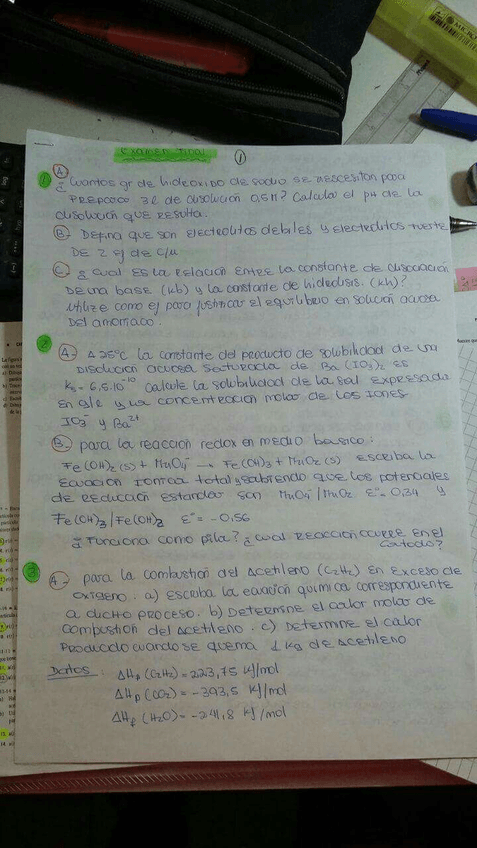 Examen Final ①
① A) ¿Cuantos gr de hidroxido de sodio se necesitan para
preparar 3l de disolución 0,5M? Calcula el pH de la
disolución que resulta.
B) Defina que son electrolitos debiles y electrolitos fuerte
de 2 ej de c/u
C) ¿Cual es la relacion entre la constante de disociación
de una base (kb) y la constante de hidrolisis. (kh)?
utilize como ej para justificar el equilibrio en solucion acuosa
del amoniaco.
② A- A 25ºC la constante del producto de solubilidad de una
disolución acuosa saturada de Ba(IO3)2 es
ks = 6,5.10-10 calcule la solubilidad de la sal expresada
en g/l y la concentracion molar de los iones
IO3- y Ba2+
B. para la reaccion redox en medio basico:
Fe(OH)2(s) + MnO4- → Fe(OH)3 + MnO2(s) escriba la
ecuación ionica total y sabiendo que los potenciales
de reducción estandar son MnO4-/MnO2 Eº=0,34 y
Fe(OH)3/Fe(OH)2 Eº=-0,56
¿Funciona como pila? ¿cual reacción ocurre en el
catodo?
③ A- para la combustion del Acetileno (C2H2) en exceso de
oxigeno. a) escriba la ecuación quimica correspondiente
a dicho proceso. b) Determine el calor molar de
combustion del Acetileno. c) Determine el calor
producido cuando se quema 1 kg de Acetileno
Datos: ΔHf (C2H2) = 223,75 kJ/mol
ΔHf (CO2) = -393,5 kJ/mol
ΔHf (H2O) = -241,8 kJ/mol